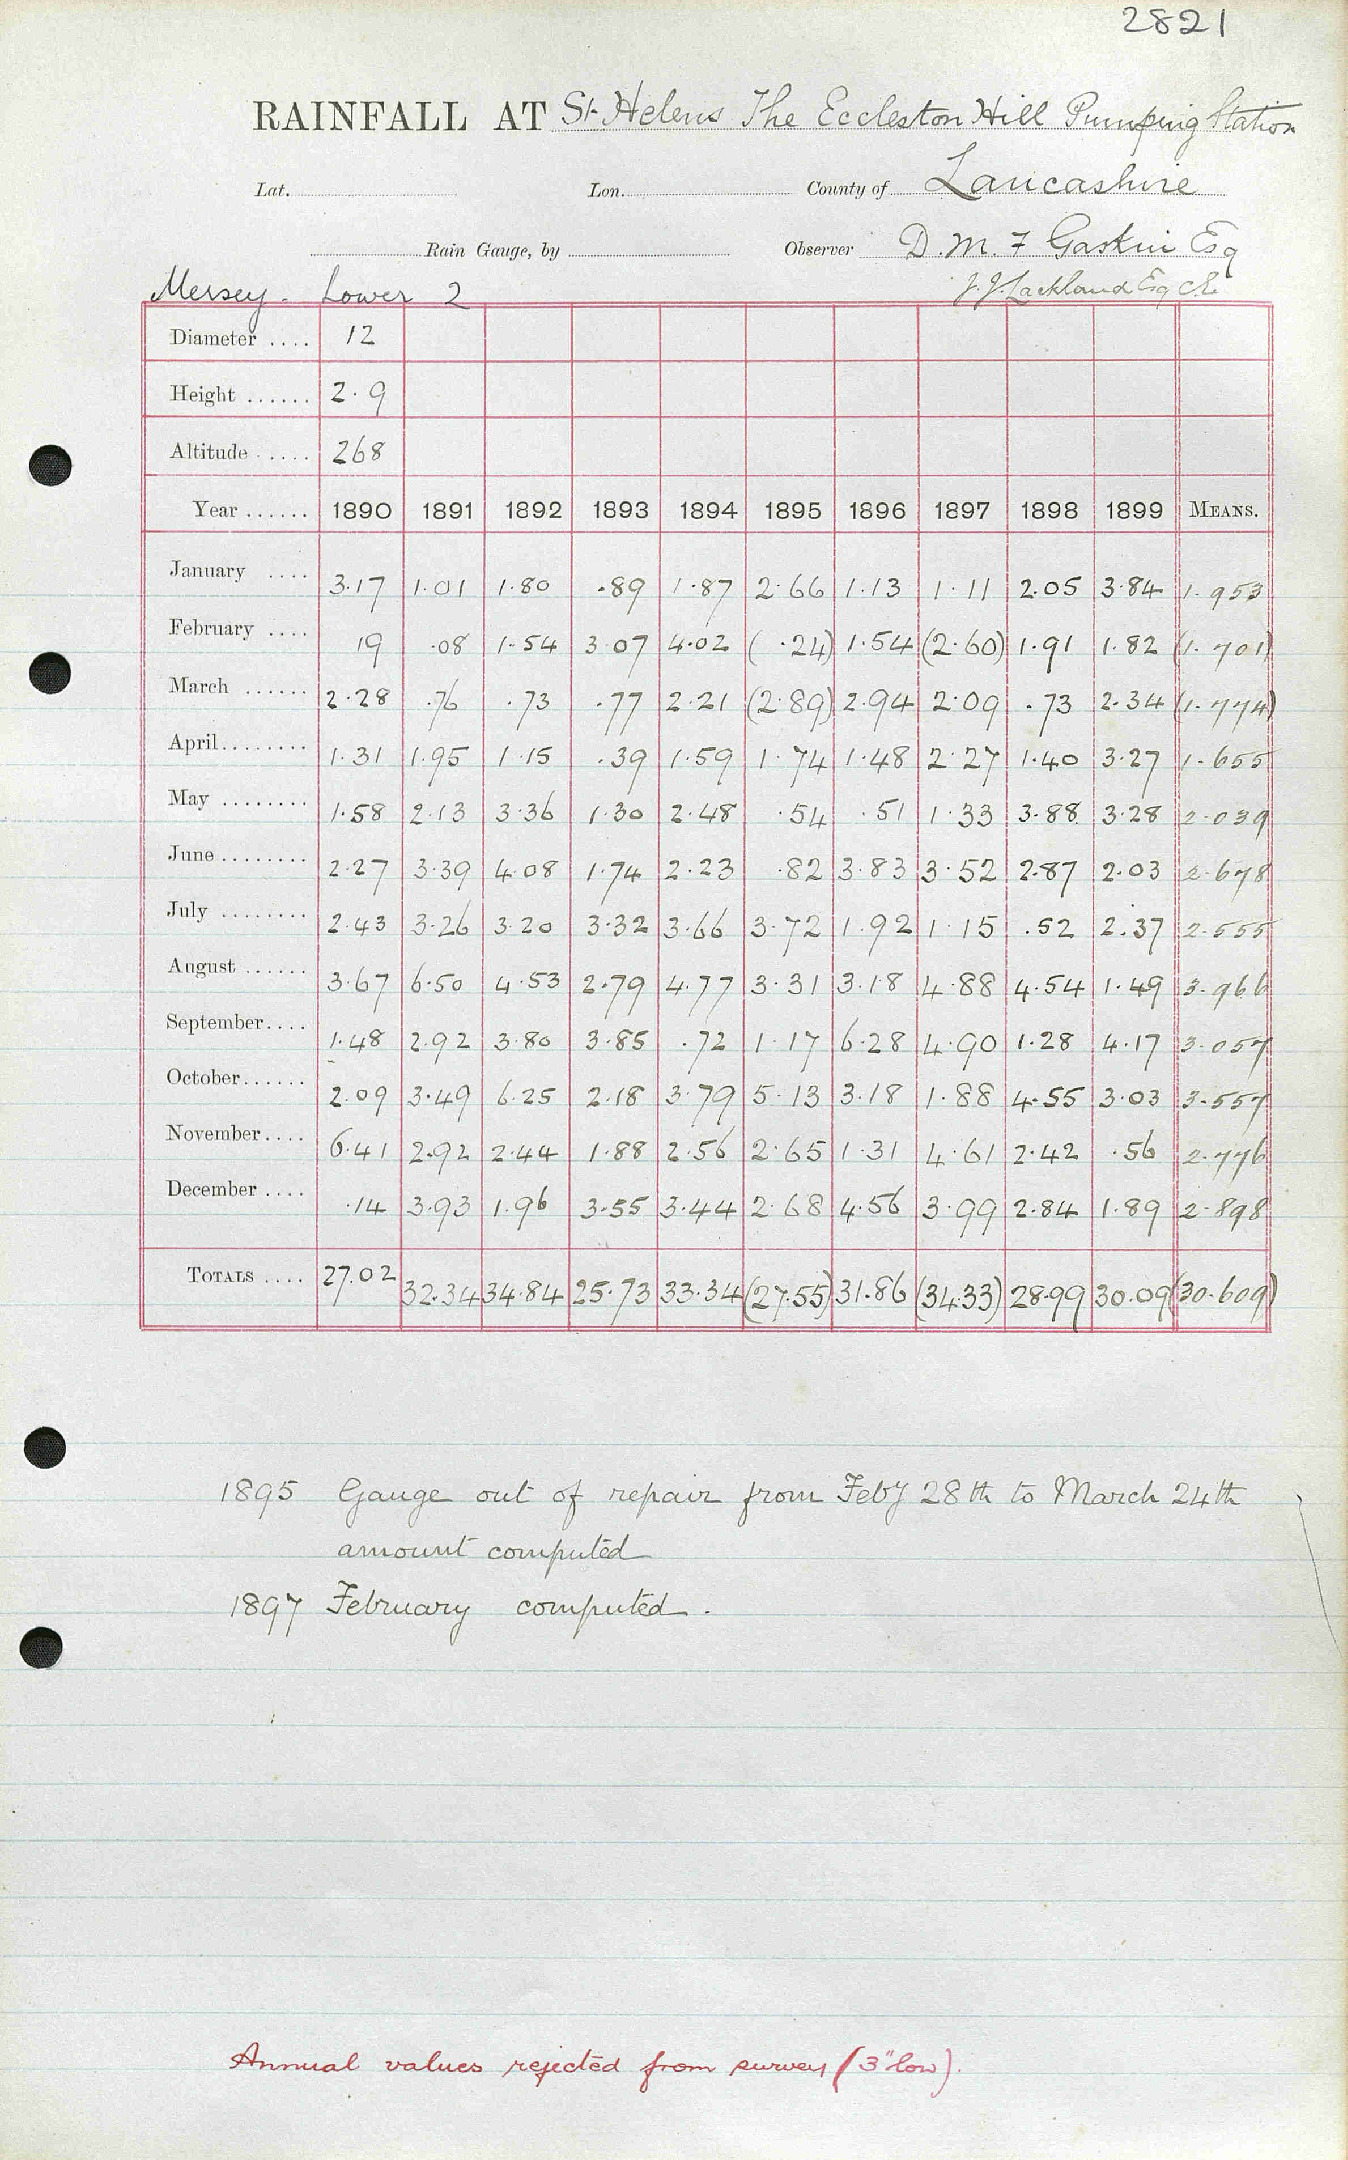 2821
RAINFALL AT St Helens The Eccleston Hill Pumping Station
Lat. Lon. County of Lancashire
Rain Gauge, by Observer D. M. F Gaskin Esq
Mersey. Lower 2 J. J. Lackland Esq C.E.
Diameter .... 12
Height ...... 2.9
Altitude ..... 268
Year ...... 1890 1891 1892 1893 1894 1895 1896 1897 1898 1899 MEANS.
January .... 3.17 1.01 1.80 .89 1.87 2.66 1.13 1.11 2.05 3.84 1.953
February .... 19 .08 1.54 3.07 4.02 ( .24) 1.54 (2.60) 1.91 1.82 (1.701)
March ...... 2.28 .76 .73 .77 2.21 (2.89) 2.94 2.09 .73 2.34 (1.774)
April........ 1.31 1.95 1.15 .39 1.59 1.74 1.48 2.27 1.40 3.27 1.655
May ........ 1.58 2.13 3.36 1.30 2.48 .54 .51 1.33 3.88 3.28 2.039
June ........ 2.27 3.39 4.08 1.74 2.23 .82 3.83 3.52 2.87 2.03 2.678
July ........ 2.43 3.26 3.20 3.32 3.66 3.72 1.92 1.15 .52 2.37 2.555
August ...... 3.67 6.50 4.53 2.79 4.77 3.31 3.18 4.88 4.54 1.49 3.966
September.... 1.48 2.92 3.80 3.85 .72 1.17 6.28 4.90 1.28 4.17 3.057
October...... 2.09 3.49 6.25 2.18 3.79 5.13 3.18 1.88 4.55 3.03 3.557
November.... 6.41 2.92 2.44 1.88 2.56 2.65 1.31 4.61 2.42 .56 2.776
December .... .14 3.93 1.96 3.55 3.44 2.68 4.56 3.99 2.84 1.89 2.898
TOTALS .... 27.02 32.34 34.84 25.73 33.34 (27.55) 31.86 (34.33) 28.99 30.09 (30.609)
1895 Gauge out of repair from Feby 28th to March 24th
amount computed
1897 February computed.
Annual values rejected from survey (3" low).